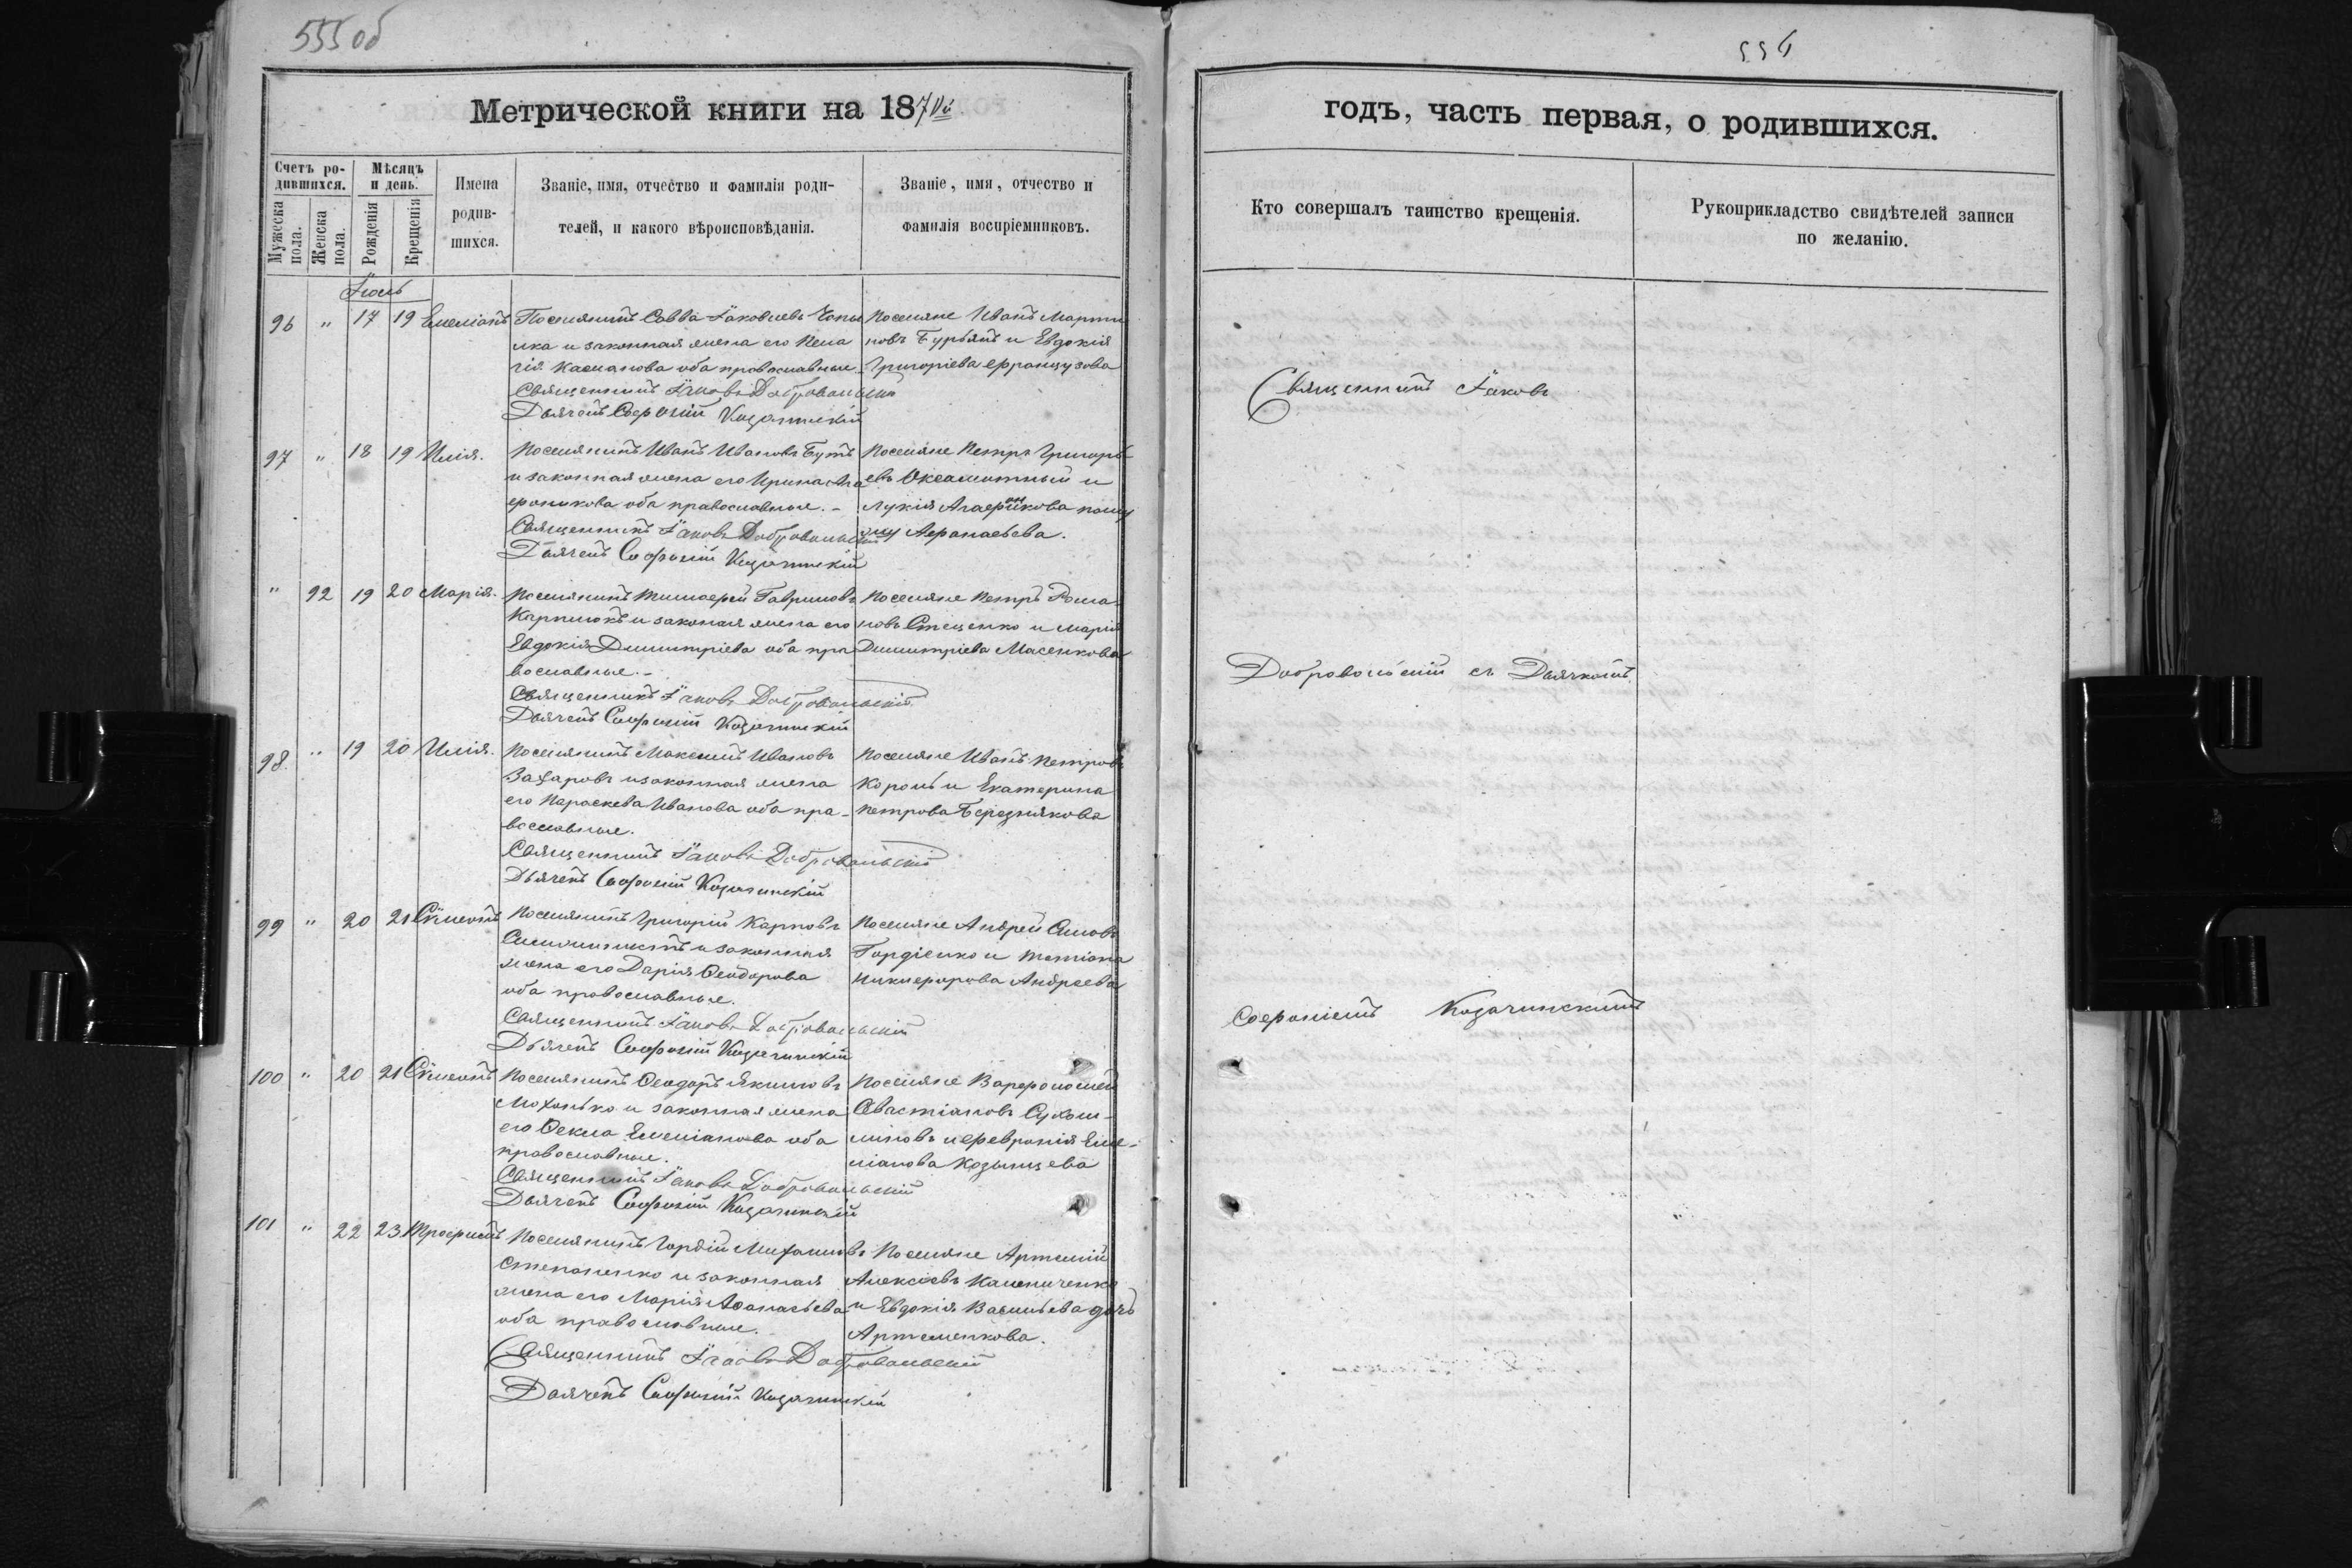 555 об
Метрической книги на 1870й
Счетъ ро-
дившихся.
Мѣсяцъ
и день.
Имена
родив-
шихся.
Званіе, имя, отчество и фамилія роди-
телей, и какого вѣроисповѣданія.
Званіе, имя, отчество и
фамилія воспріемниковъ.
Мужеска
пола.
Женска
пола.
Рожденія
Крещенія
Іюль
96 " 17 19 Емеліанъ Поселянинъ Савва Іаковлевъ
и законная жена его Пела
гія Касианова оба православные
Священникъ Іаковъ Добровольскій
Дьячекъ Софроній Козачинскій
Поселяне Иванъ Марти
новъ Бурьянъ и Евдокія
Григоріева Французова
97 " 18 19 Илія. Поселянинъ Иванъ Ивановъ Бутъ
и законная жена его Ирина Ага
фоникова оба православные. -
Священникъ Іаковъ Добровольскій
Дьячекъ Софроній Козачинскій
Поселяне Петръ Григорь
евъ Оксамитный и
Лукія Агафоникова
Афанасьева.
" 92 19 20 Марія. Поселянинъ Тимофей Гавриловъ
Карпнюкъ и законая жена его
Евдокія Димитріева оба пра
вославные. -
Священникъ Іаковъ Добровольскій
Дьячекъ Софроній Козачинскій
Поселяне Петръ Рома-
новъ Стеценко и Марія
Димитріева Масенкова
98. " 19 20 Илія. Поселянинъ Максимъ Ивановъ
Захаровъ и законная жена
его Параскева Иванова оба пра-
вославные.
Священникъ Іаковъ Добровольскій
Дьячекъ Софроній Козачинскій
Поселяне Иванъ Петровъ
Король и Екатерина
Петрова Березнякова
99 " 20 21 Сѵмеонъ Поселянинъ Григорій Карповъ
и законная
жена его Дарія Ѳеодорова
оба православные.
Священникъ Іаковъ Добровольскій
Дьячекъ Софроній Козачинскій
Поселяне Андрей
Гордіенко и Татіана
Никифорова Андреева
100 " 20 21 Сѵмеонъ Поселянинъ Ѳеодоръ Якимовъ
Мохонько и законная жена
его Ѳекла Емеліанова оба
православные.
Священникъ Іаковъ Добровольскій
Дьячекъ Софроній Козачинскій
Поселяне Варфоломей
Севастіановъ Сухом-
линовъ и Февронія Еме-
ліанова Козынцева
101 " 22 23 Трофимъ Поселянинъ Гордій Михаиловъ
Степаненко и законная
жена его Марія Аѳанасьева
оба православные.
Священникъ Іаковъ Добровольскій
Дьячекъ Софроній Козачинскій
Поселяне Артемій
Алексіевъ Калениченко
и Евдокія Васильева дочь
Артеменкова.
556
годъ, часть первая, о родившихся.
Кто совершалъ таинство крещенія.
Рукоприкладство свидѣтелей записи
по желанію.
Священникъ Іаковъ
Добровольскій съ Дьячкомъ
Софроніемъ Козачинскимъ